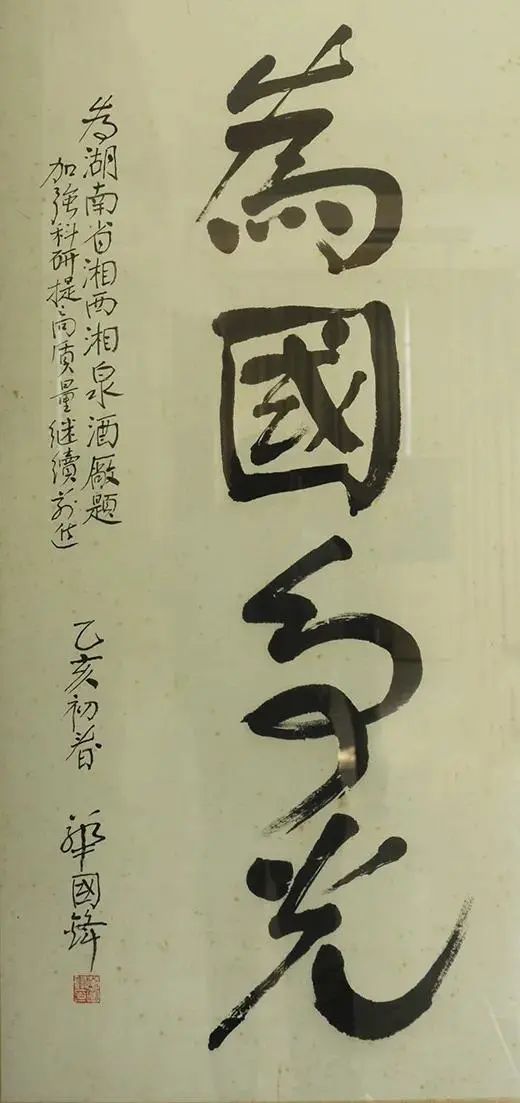 為國争光
为湖南省湘西湘泉酒厰題
加強科研提高质量继續前进
乙亥初春
華國鋒